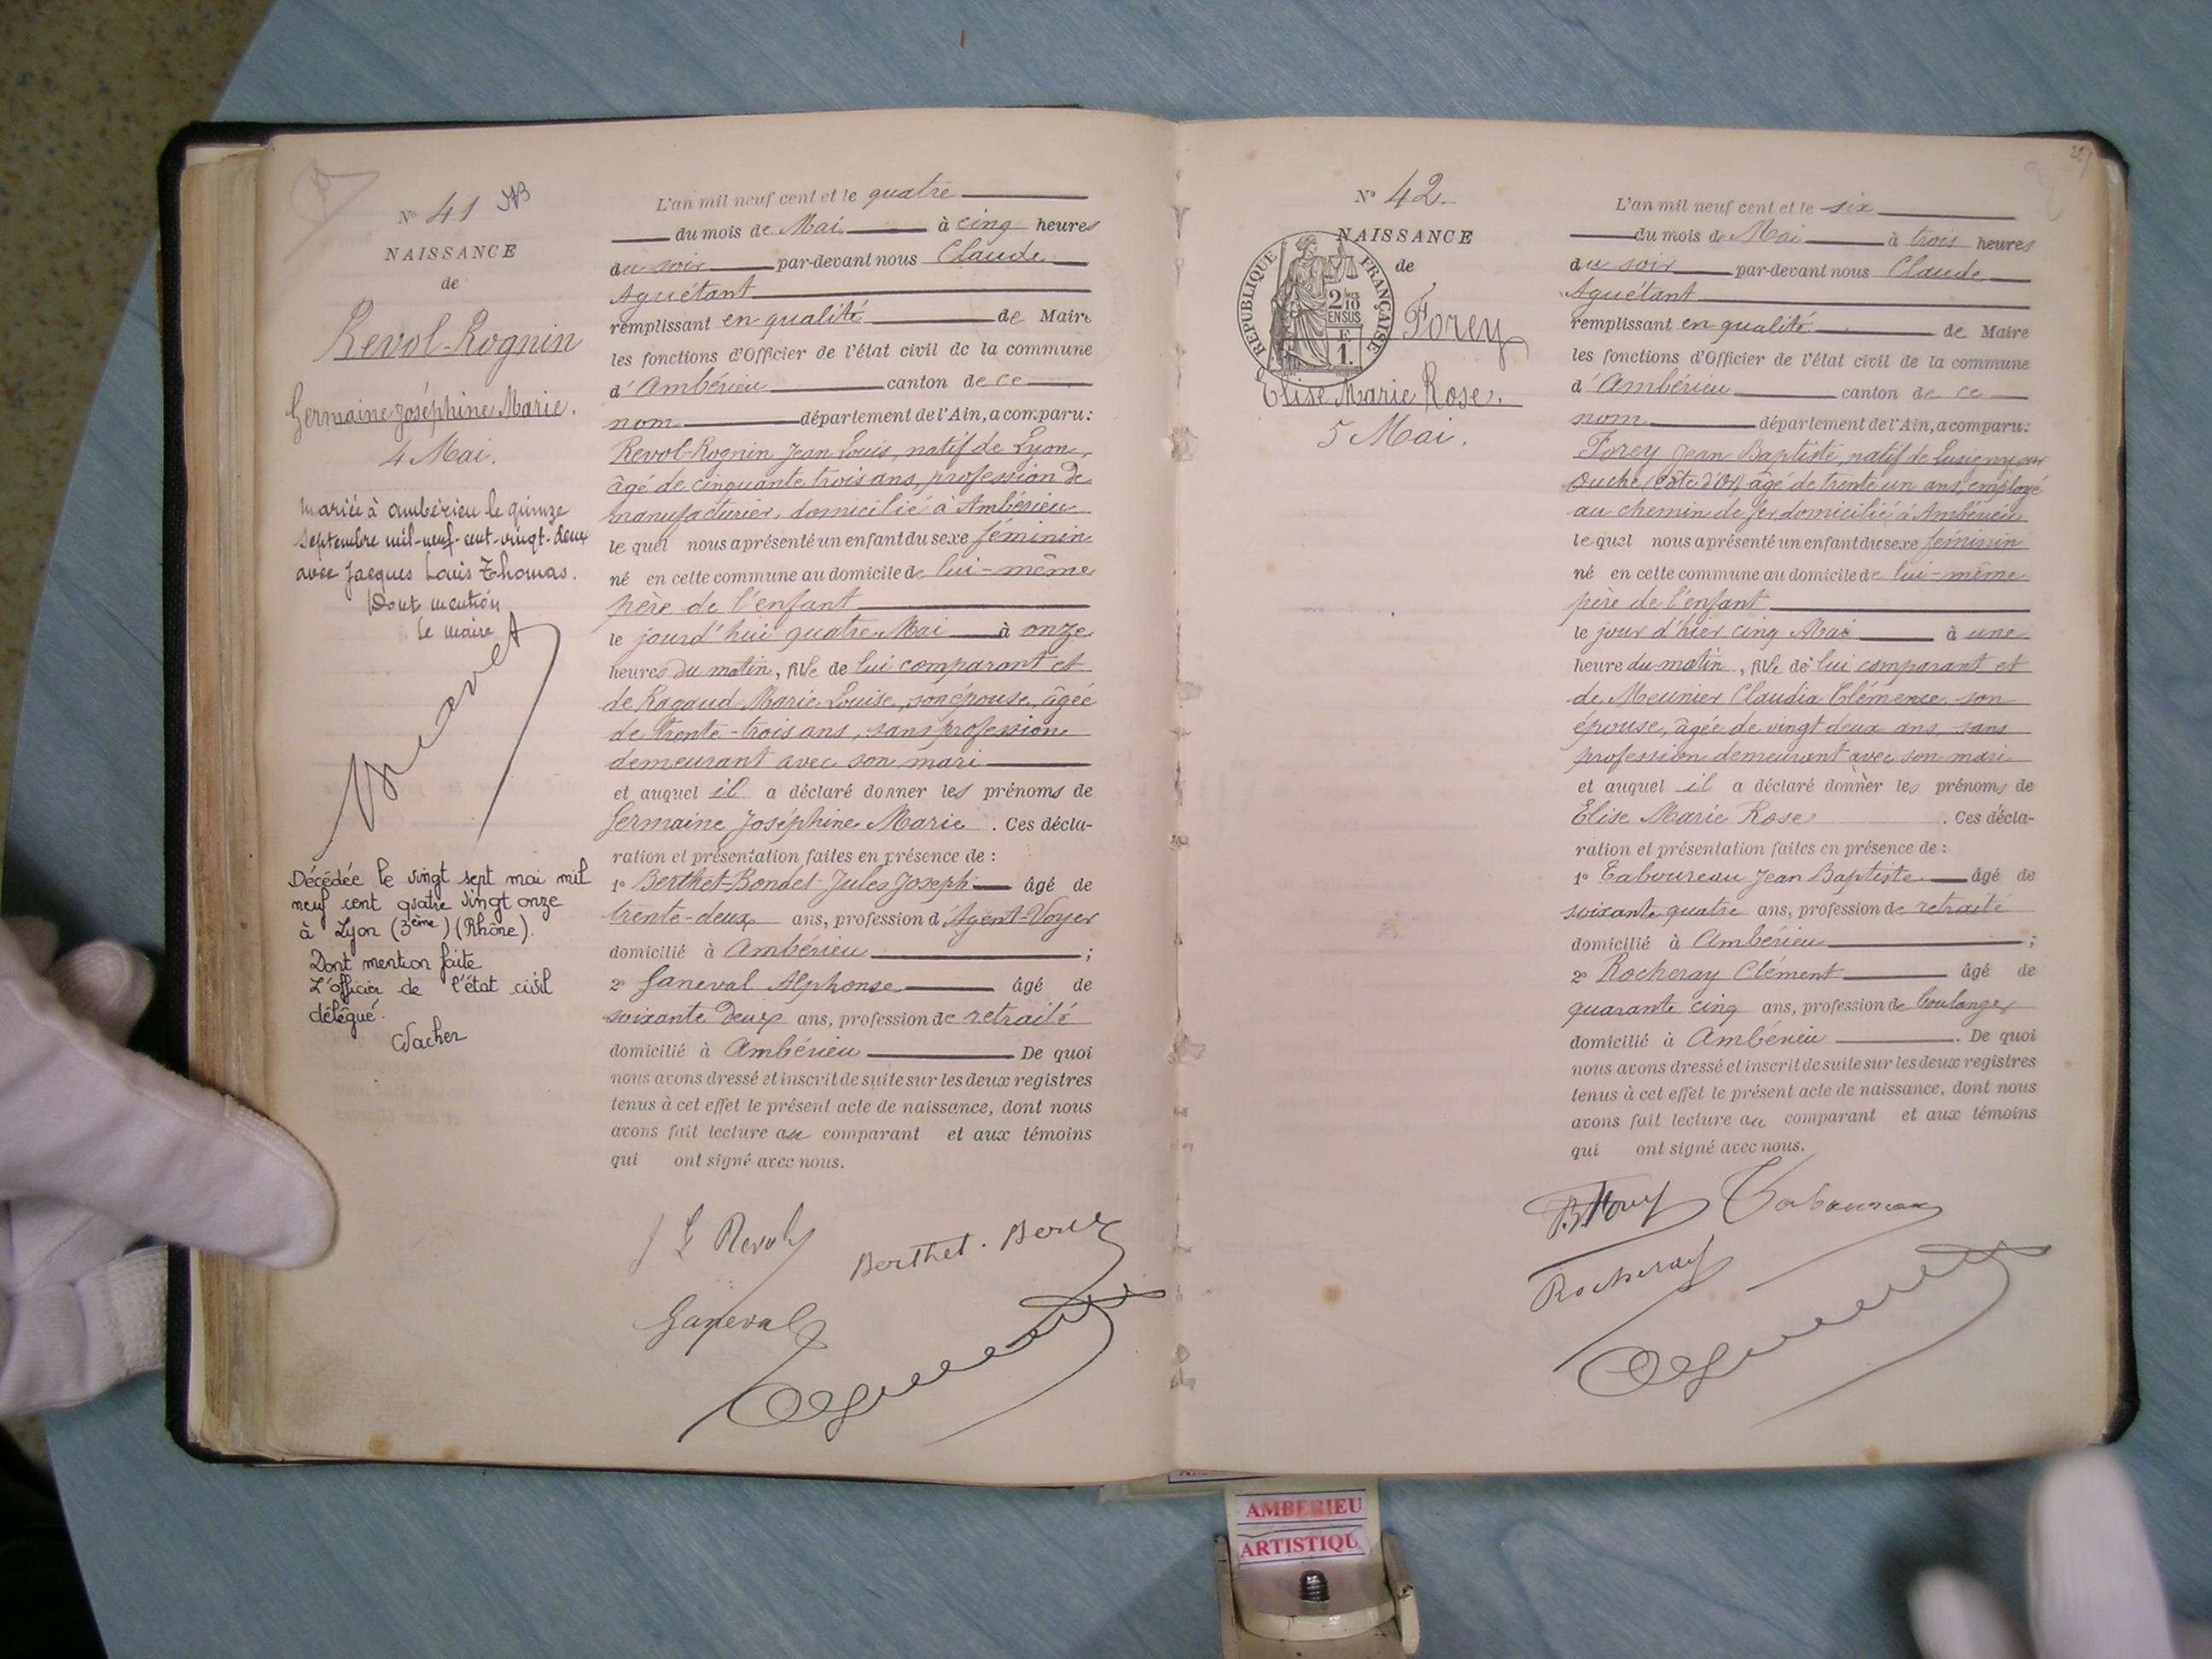 N° 41
NAISSANCE
de
Revol-Rognin
Germaine Joséphine Marie.
4 Mai.
mariée à ambérieu le quinze
septembre mil-neuf-cent-vingt-deux
avec Jacques Louis Thomas.
Dont mention
Le maire
Décédée le vingt sept mai mil
neuf cent quatre vingt onze
à Lyon (3ème) (Rhône).
Dont mention faite
L'officier de l'état civil
délégué.
L'an mil neuf cent et le quatre
du mois de Mai à cinq heures
du soir par-devant nous Claude
Aguétant
remplissant en qualité de Maire
les fonctions d'Officier de l'état civil de la commune
d'Ambérieu canton de ce
nom département de l'Ain, a comparu:
Revol-Rognin Jean Louis, natif de Lyon,
âgé de cinquante trois ans, profession de
manufacturier, domicilié à Ambérieu
le quel nous a présenté un enfant du sexe féminin
né en cette commune au domicile de lui-même
père de l'enfant
le jourd'hui quatre Mai à onze
heures du matin, fille de lui comparant et
de Ragaud Marie Louise, son épouse, âgée
de trente-trois ans, sans profession
demeurant avec son mari
et auquel il a déclaré donner les prénoms de
Germaine Joséphine Marie. Ces décla-
ration et présentation faites en présence de :
1° Berthet-Bondet Jules Joseph âgé de
trente-deux ans, profession d'Agent-Voyer
domicilié à Ambérieu ;
2° Ganeval Alphonse âgé de
soixante deux ans, profession de retraité
domicilié à Ambérieu De quoi
nous avons dressé et inscrit de suite sur les deux registres
tenus à cet effet le présent acte de naissance, dont nous
avons fait lecture au comparant et aux témoins
qui ont signé avec nous.
J L Revol
Berthet-
Ganeval
N° 42
NAISSANCE
de
RÉPUBLIQUE FRANÇAISE
2/10
EN SUS
F.
1.
Forey
Elise Marie Rose.
5 Mai.
L'an mil neuf cent et le six
du mois de Mai à trois heures
du soir par-devant nous Claude
Aguétant
remplissant en qualité de Maire
les fonctions d'Officier de l'état civil de la commune
d'Ambérieu canton de ce
nom département de l'Ain, a comparu:
Forey Jean Baptiste, natif de Lusigny sur
Ouche (Côte d'Or), âgé de trente un ans, employé
au chemin de fer domicilié à Ambérieu
le quel nous a présenté un enfant du sexe féminin
né en cette commune au domicile de lui-même
père de l'enfant
le jour d'hier cinq Mai à une
heure du matin, fille de lui comparant et
de Meunier Claudia Clémence son
épouse, âgée de vingt deux ans, sans
profession demeurant avec son mari
et auquel il a déclaré donner les prénoms de
Elise Marie Rose. Ces décla-
ration et présentation faites en présence de :
1° Taboureau Jean Baptiste âgé de
soixante quatre ans, profession de retraité
domicilié à Ambérieu ;
2° Rocheray Clément âgé de
quarante cinq ans, profession de boulanger
domicilié à Ambérieu. De quoi
nous avons dressé et inscrit de suite sur les deux registres
tenus à cet effet le présent acte de naissance, dont nous
avons fait lecture au comparant et aux témoins
qui ont signé avec nous.
Taboureau
Rocheray
AMBERIEU
ARTISTIQU